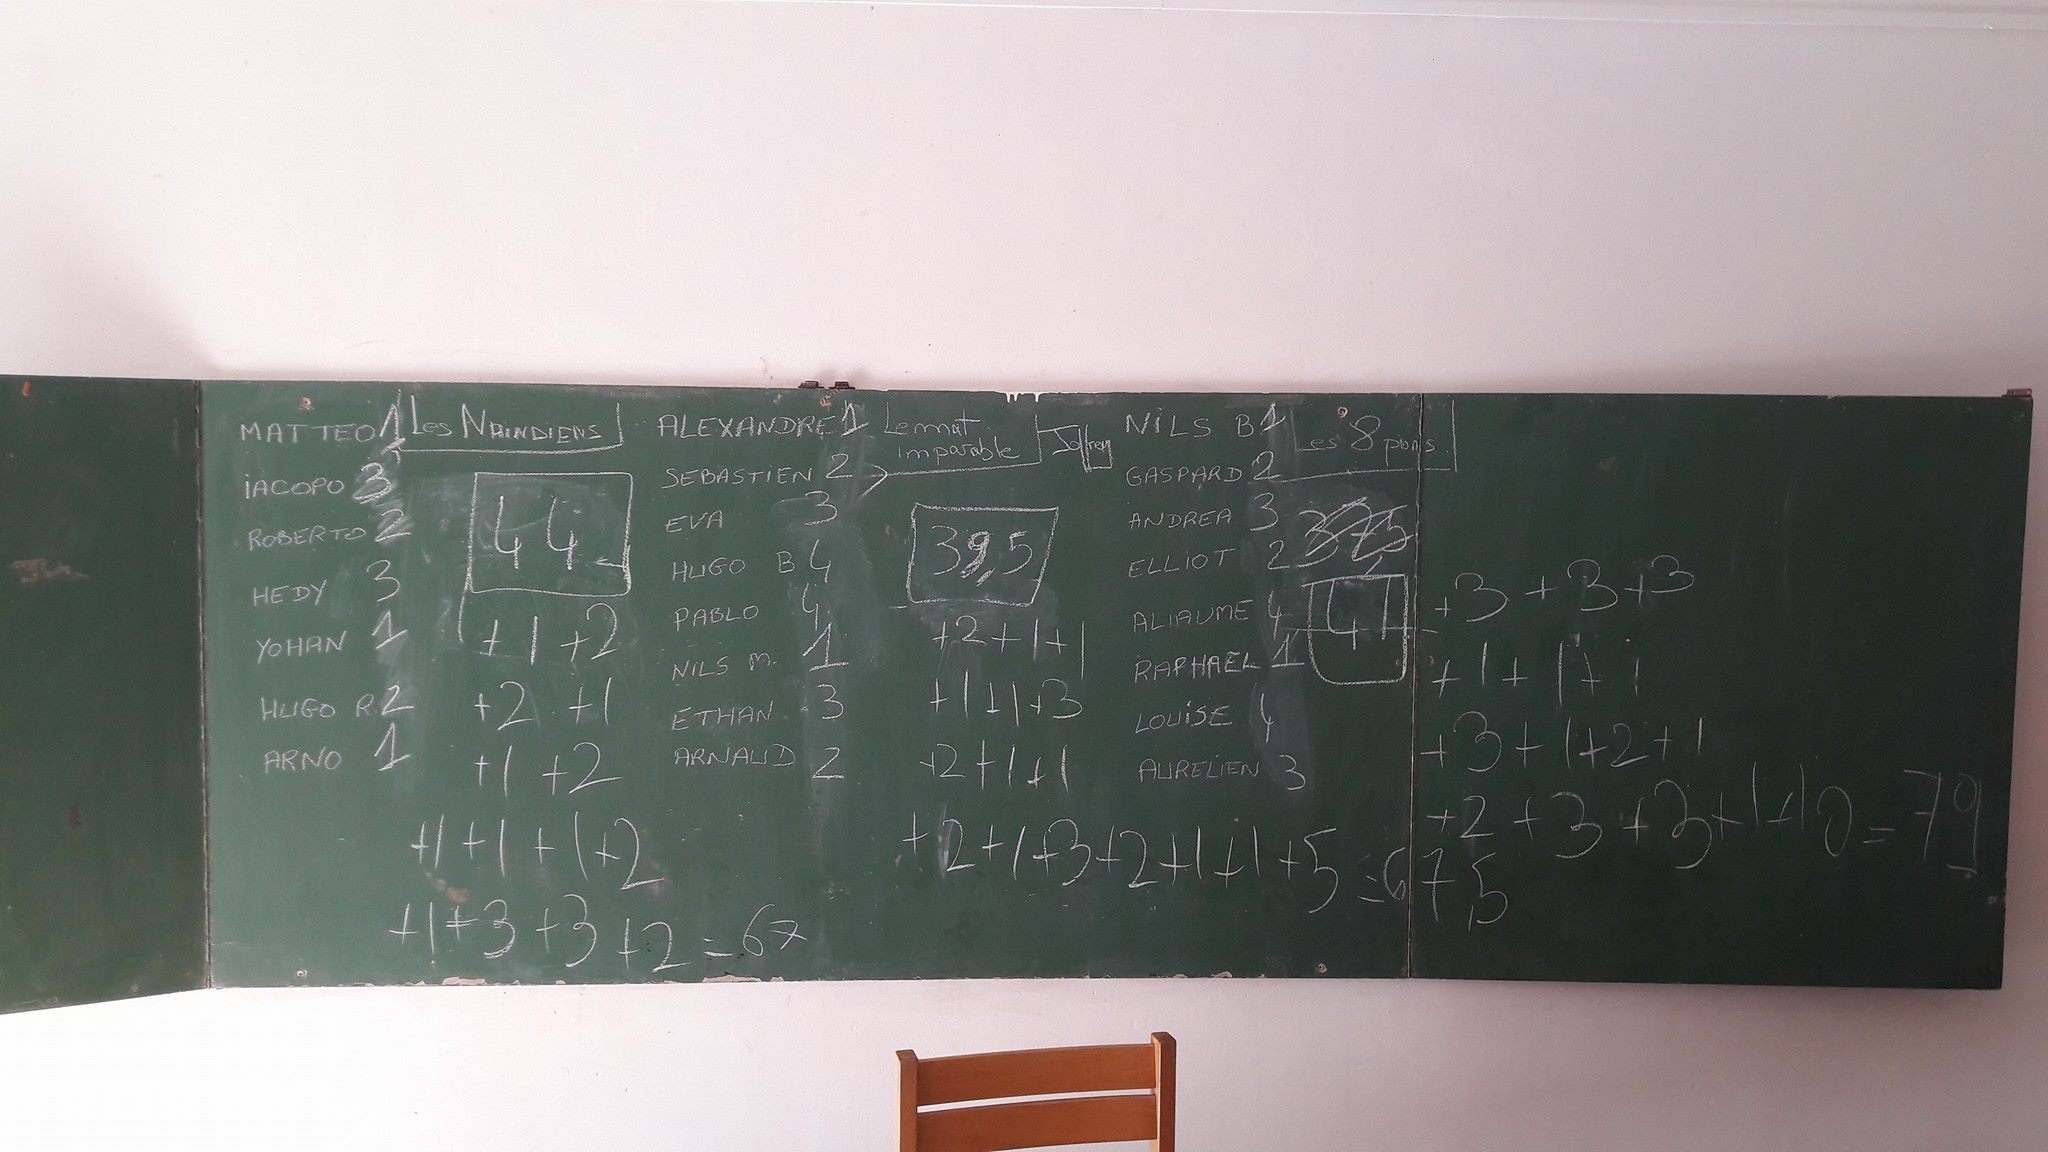 MATTEO 1 Les NAINDIENS
IACOPO 3
ROBERTO 2
HEDY 3
YOHAN 1
HUGO R. 2
ARNO 1
44
+1 +2
+2 +1
+1 +2
+1 +1 +1 +2
+1 +3 +3 +2 = 67
ALEXANDRE 1 Le mat
imparable
SEBASTIEN 2
EVA 3
HUGO B 4
PABLO 4
NILS M. 1
ETHAN 3
ARNAUD 2
39,5
+2 +1 +1
+1 +1 +3
+2 +1 +1
+2 +1 +3 +2 +1 +1 +5 = 67,5
NILS B 1 Les 8 pions
GASPARD 2
ANDREA 3
ELLIOT 2
ALIAUME 4
RAPHAEL 1
LOUISE 4
AURELIEN 3
375
41
+3 +3 +3
+1 +1 +1
+3 +1 +2 +1
+2 +3 +3 +1 +10 = 79